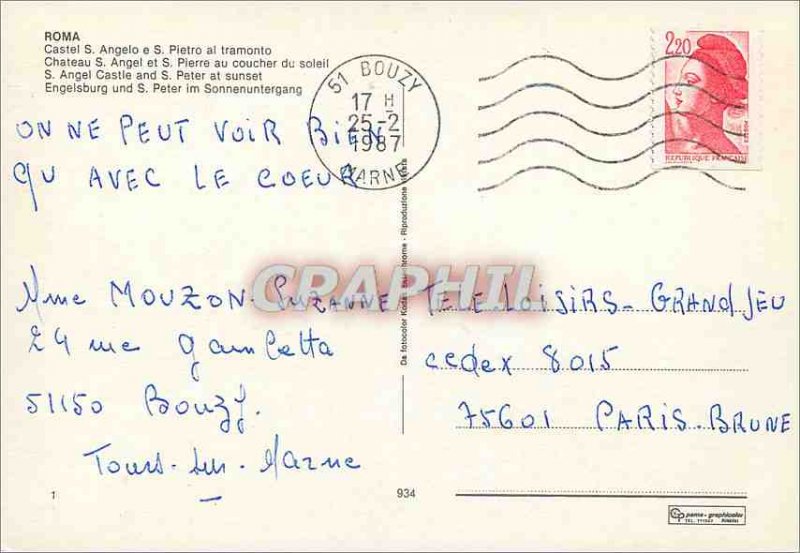 ROMA
Castel S. Angelo e S. Pietro al tramonto
Chateau S. Angel et S. Pierre au coucher du soleil
S. Angel Castle and S. Peter at sunset
Engelsburg und S. Peter im Sonnenuntergang
51 BOUZY
17 H
25-2
1987
MARNE
2,20
REPUBLIQUE FRANÇAISE
ON NE PEUT VOIR BIEN
QU AVEC LE COEUR
CRAPHIL
Mme MOUZON SUZANNE
24 rue Gambetta
51150 Bouzy.
Tours-sur-Marne
TELE LOISIRS - GRAND JEU
cedex 8015
75601 PARIS-BRUNE
Da fotocolor Kodak - Riproduzione vietata
1
934